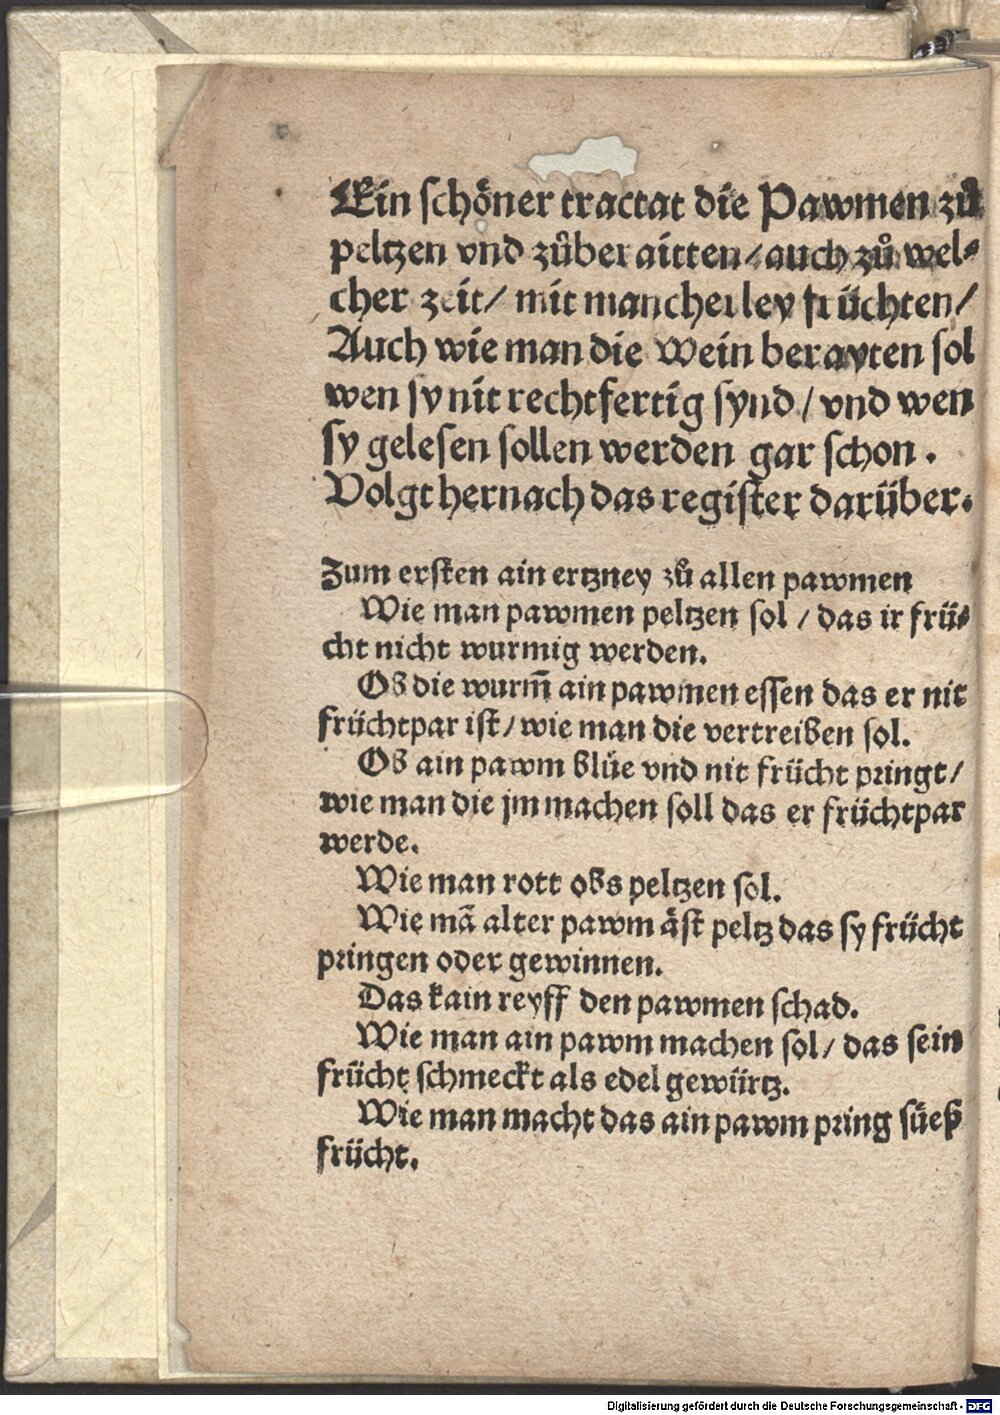 Ein schöner tractat die Pawmen zů
peltzen vnd zůber aitten/auch zů wel⸗
cher zeit/ mit mancherley früchten/
Auch wie man die Wein berayten sol
wen sy nit rechtfertig synd/vnd wen
sy gelesen sollen werden gar schon.
Volgt hernach das register darüber.
Zum ersten ain ertzney zů allen pawmen
Wie man pawmen peltzen sol / das ir frü⸗
cht nicht wurmig werden.
Ob die wurm̄ ain pawmen essen das er nit
früchtpar ist/wie man die vertreiben sol.
Ob ain pawm blüe vnd nit frücht pringt/
wie man die jm machen soll das er früchtpar
werde.
Wie man rott obs peltzen sol.
Wie mā alter pawm äst peltz das sy frücht
pringen oder gewinnen.
Das kain reyff den pawmen schad.
Wie man ain pawm machen sol/ das sein
frücht schmeckt als edel gewürtz.
Wie man macht das ain pawm pring süeß
frücht.
Digitalisierung gefördert durch die Deutsche Forschungsgemeinschaft - DFG